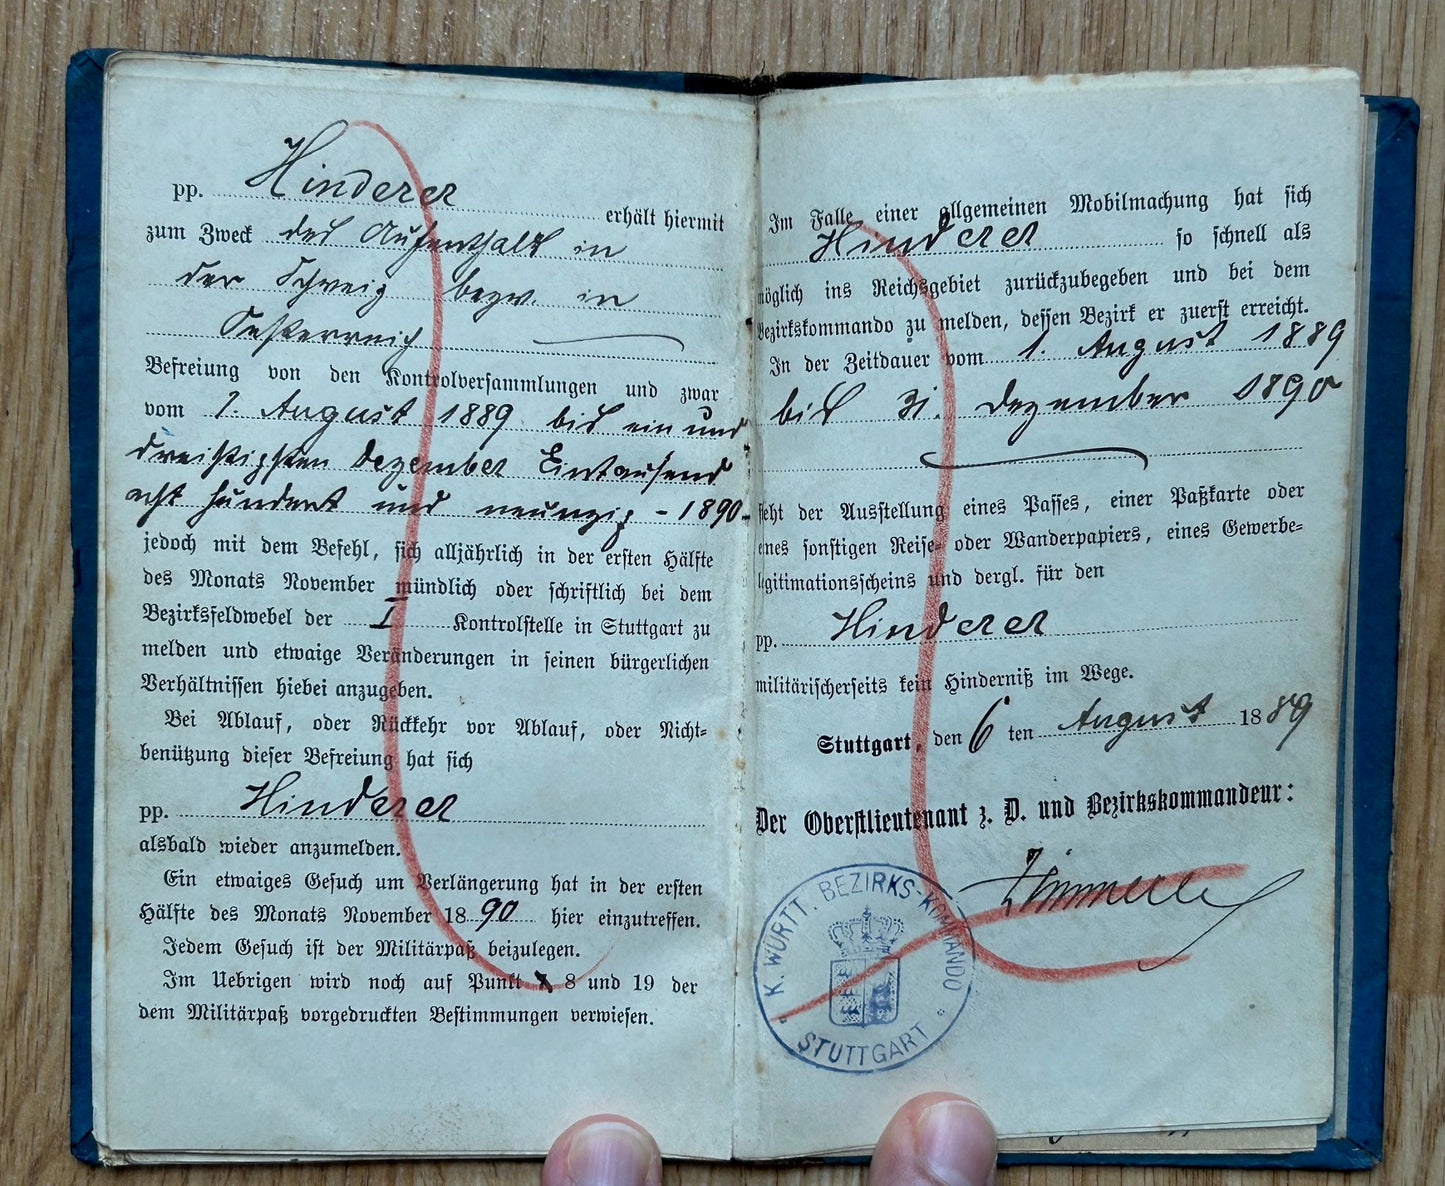 pp. Hinderer erhält hiermit
zum Zweck des Aufenthalts in
der Schweiz bezw. in
Oesterreich
Befreiung von den Kontrolversammlungen und zwar
vom 1. August 1889 bis ein und
dreißigsten Dezember Eintausend
acht hundert und neunzig - 1890 -
jedoch mit dem Befehl, sich alljährlich in der ersten Hälfte
des Monats November mündlich oder schriftlich bei dem
Bezirksfeldwebel der I Kontrolstelle in Stuttgart zu
melden und etwaige Veränderungen in seinen bürgerlichen
Verhältnissen hiebei anzugeben.
Bei Ablauf, oder Rückkehr vor Ablauf, oder Nicht-
benützung dieser Befreiung hat sich
pp. Hinderer
alsbald wieder anzumelden.
Ein etwaiges Gesuch um Verlängerung hat in der ersten
Hälfte des Monats November 1890 hier einzutreffen.
Jedem Gesuch ist der Militärpaß beizulegen.
Im Uebrigen wird noch auf Punkt 8 und 19 der
dem Militärpaß vorgedruckten Bestimmungen verwiesen.
Im Falle einer allgemeinen Mobilmachung hat sich
Hinderer so schnell als
möglich ins Reichsgebiet zurückzubegeben und bei dem
Bezirkskommando zu melden, dessen Bezirk er zuerst erreicht.
In der Zeitdauer vom 1. August 1889
bis 31. Dezember 1890
steht der Ausstellung eines Passes, einer Paßkarte oder
eines sonstigen Reise- oder Wanderpapiers, eines Gewerbe-
legitimationsscheins und dergl. für den
pp. Hinderer
militärischerseits kein Hinderniß im Wege.
Stuttgart, den 6 ten August 1889
Der Oberstlieutenant z. D. und Bezirkskommandeur:
K. WÜRTT. BEZIRKS-KOMMANDO
STUTTGART